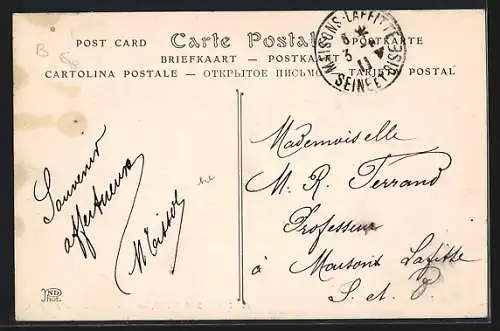 POST CARD
Carte Postale
POSTKARTE
BRIEFKAART — POSTKAART
CARTOLINA POSTALE — ОТКРЫТОЕ ПИСЬМО
TARJETA POSTAL
MAISONS-LAFFITTE
SEINE-ET-OISE
Souvenir
affectueux
Mademoiselle
M. R. Terrand
Professeur
à Maisons Lafitte
S. et
ND
Phot.